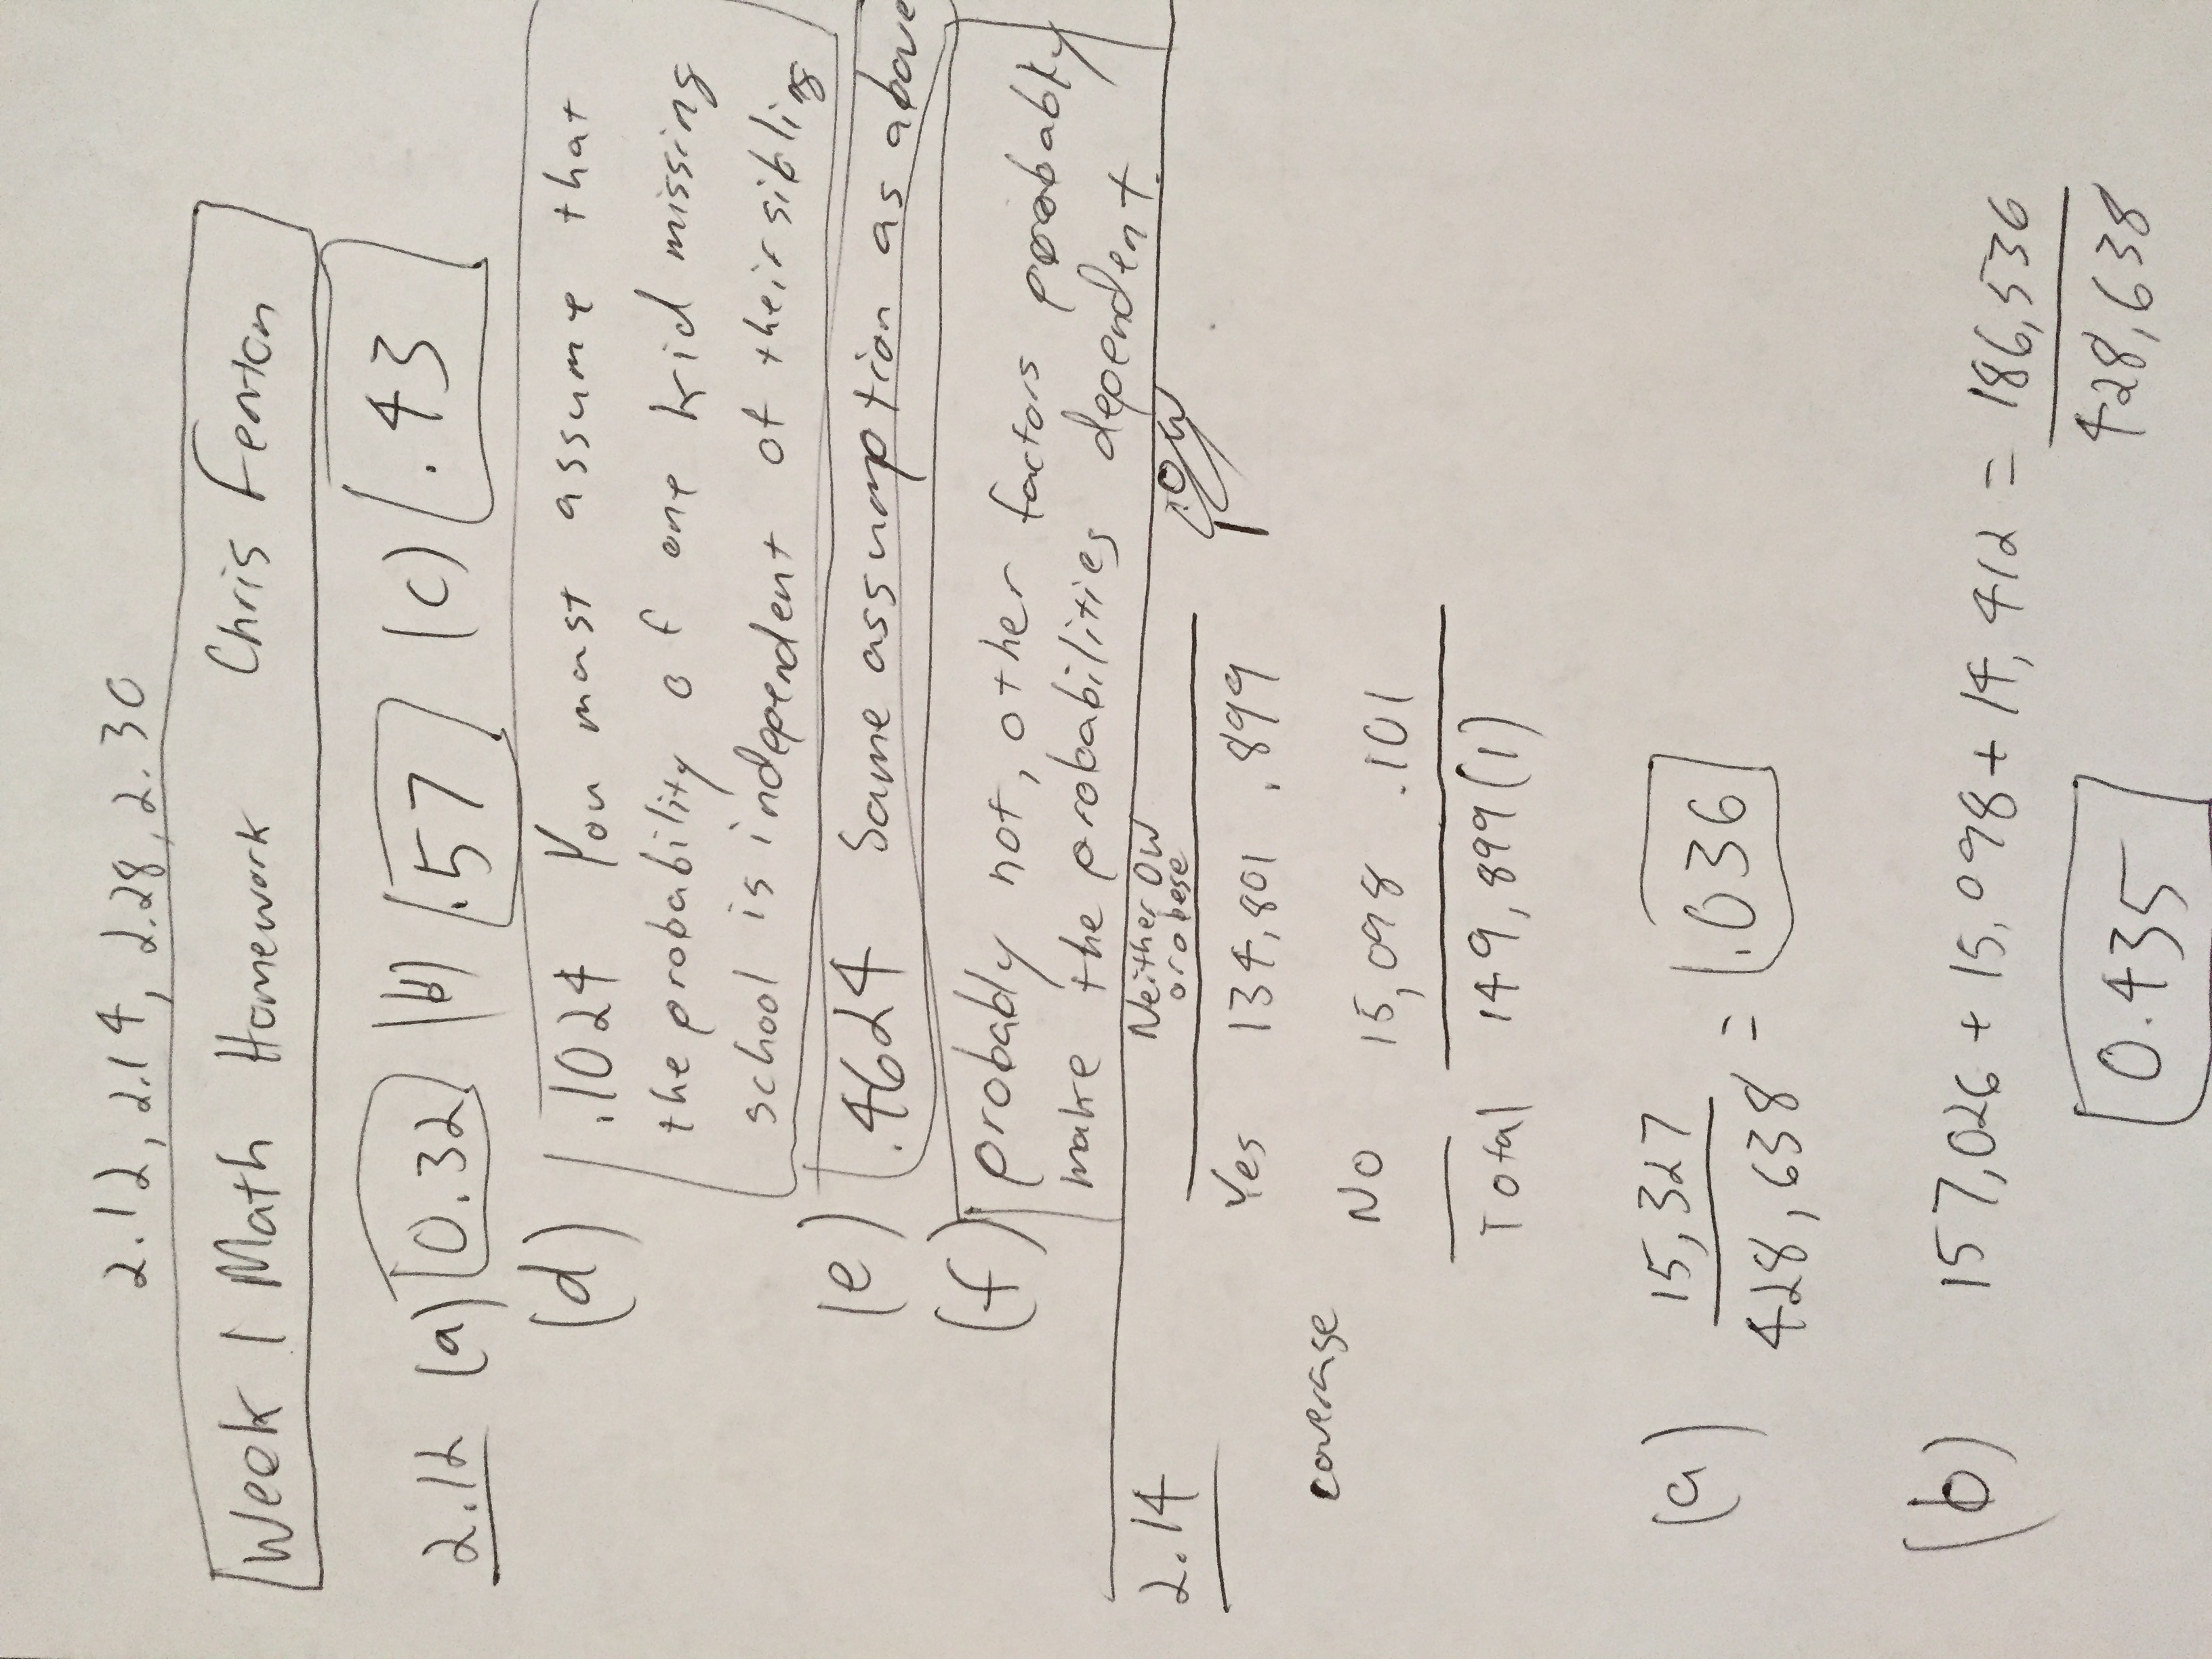 2.12, 2.14, 2.28, 2.30
Week 1 Math Homework Chris Fenton
2.12 (a) 0.32 (b) .57 (c) .43
(d) .1024 You must assume that
the probability of one kid missing
school is independent of their sibling
(e) .4624 Same assumption as above
(f) probably not, other factors probably
make the probabilities dependent.
2.14 Neither OW
or obese
OW
Yes 134,801 .899
coverage
No 15,098 .101
Total 149,899 (1)
(a) 15,327
428,638 = .036
(b) 157,026 + 15,098 + 14,412 = 186,536
428,638
0.435